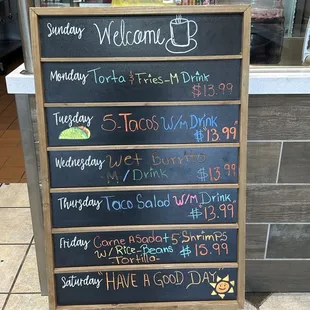 Sunday Welcome
Monday Torta & Fries-M Drink
$13.99
Tuesday 5-Tacos W/M Drink
$13.99
Wednesday Wet Burrito
M/Drink $13.99
Thursday Taco Salad W/M Drink
$13.99
Friday Carne Asada & 5 Shrimps
W/Rice-Beans $15.99
-Tortilla-
Saturday "HAVE A GOOD DAY"